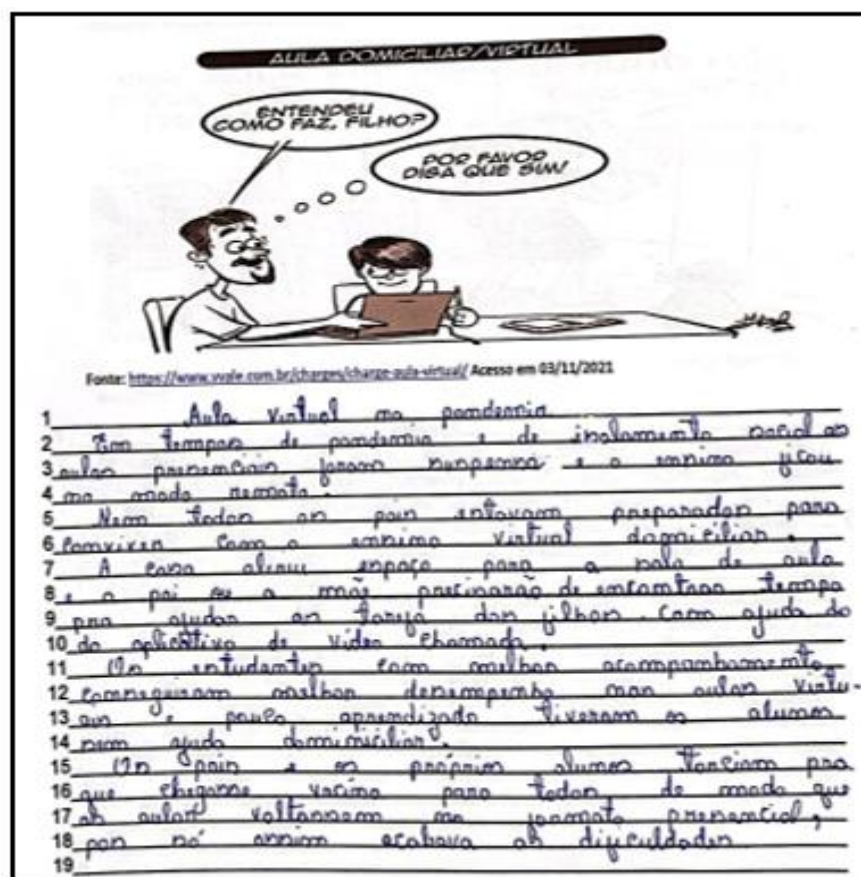 AULA DOMICILIAR/VIRTUAL
ENTENDEU
COMO FAZ, FILHO?
POR FAVOR
DIGA QUE SIM!
Fonte: https://www.vvale.com.br/charges/charge-aula-virtual/ Acesso em 03/11/2021
1 Aula virtual na pandemia
2 Em tempos de pandemia e de isolamento social as
3 aulas presenciais foram suspensa e o ensino ficou
4 no modo remoto.
5 Nem todos os pais estavam preparados para
6 conviver com o ensino virtual domiciliar.
7 A casa abriu espaço para a sala de aula
8 e o pai ou a mãe precisarão de encontrar tempo
9 pra ajudar as tarefa dos filhos. Com ajuda do
10 do aplicativo de vídeo chamada.
11 Os estudantes com melhor acompanhamento
12 conseguiram melhor desempenho nas aulas virtu-
13 ais e pouco aprendizado tiveram os alunos
14 sem ajuda dominiciliar.
15 Os pais e os próprios alunos torciam pra
16 que chegasse vacina para todos de modo que
17 as aulas voltassem no formato presencial,
18 pois só assim acabava as dificuldades
19